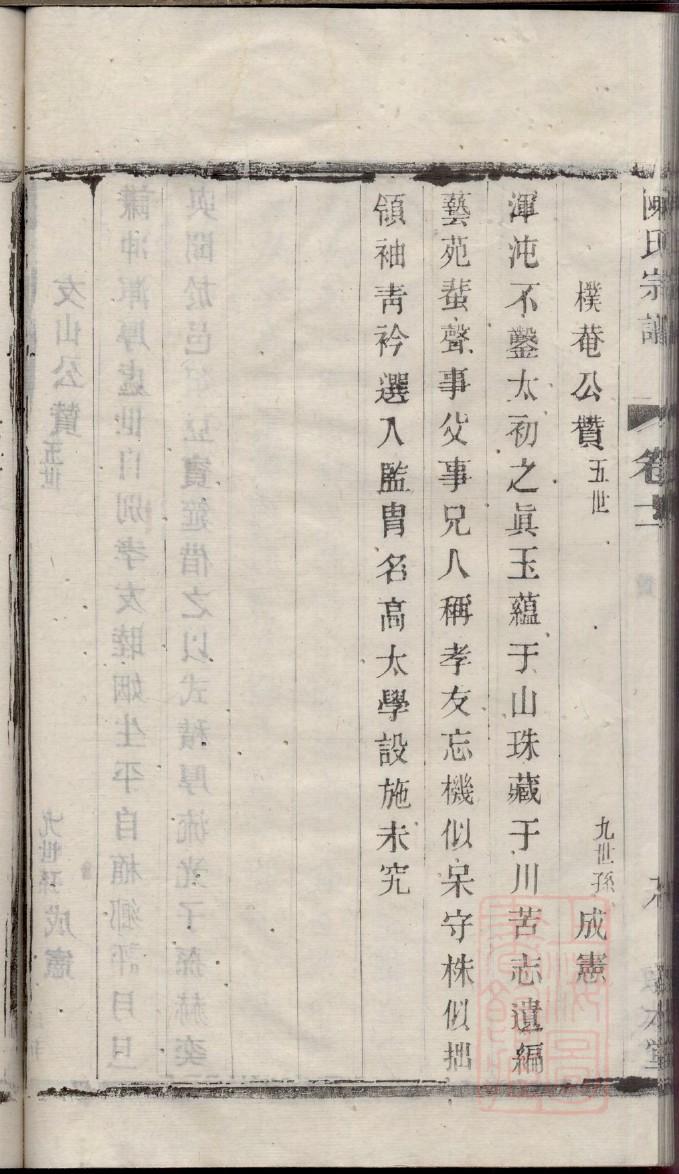 陳氏宗譜 卷二
樸菴公贊五世 九世孫成憲
渾沌不鑿太初之眞玉蘊于山珠藏于川苦志遺編
藝苑蜚聲事父事兄人稱孝友忘機似呆守株似拙
領袖青衿選入監胄名高太學設施未究